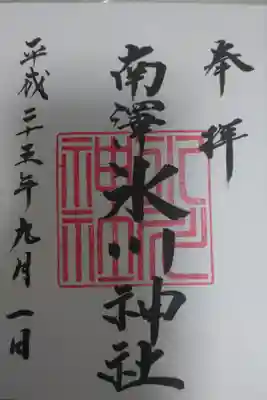 奉拝
南澤氷川神社
平成二十三年九月一日